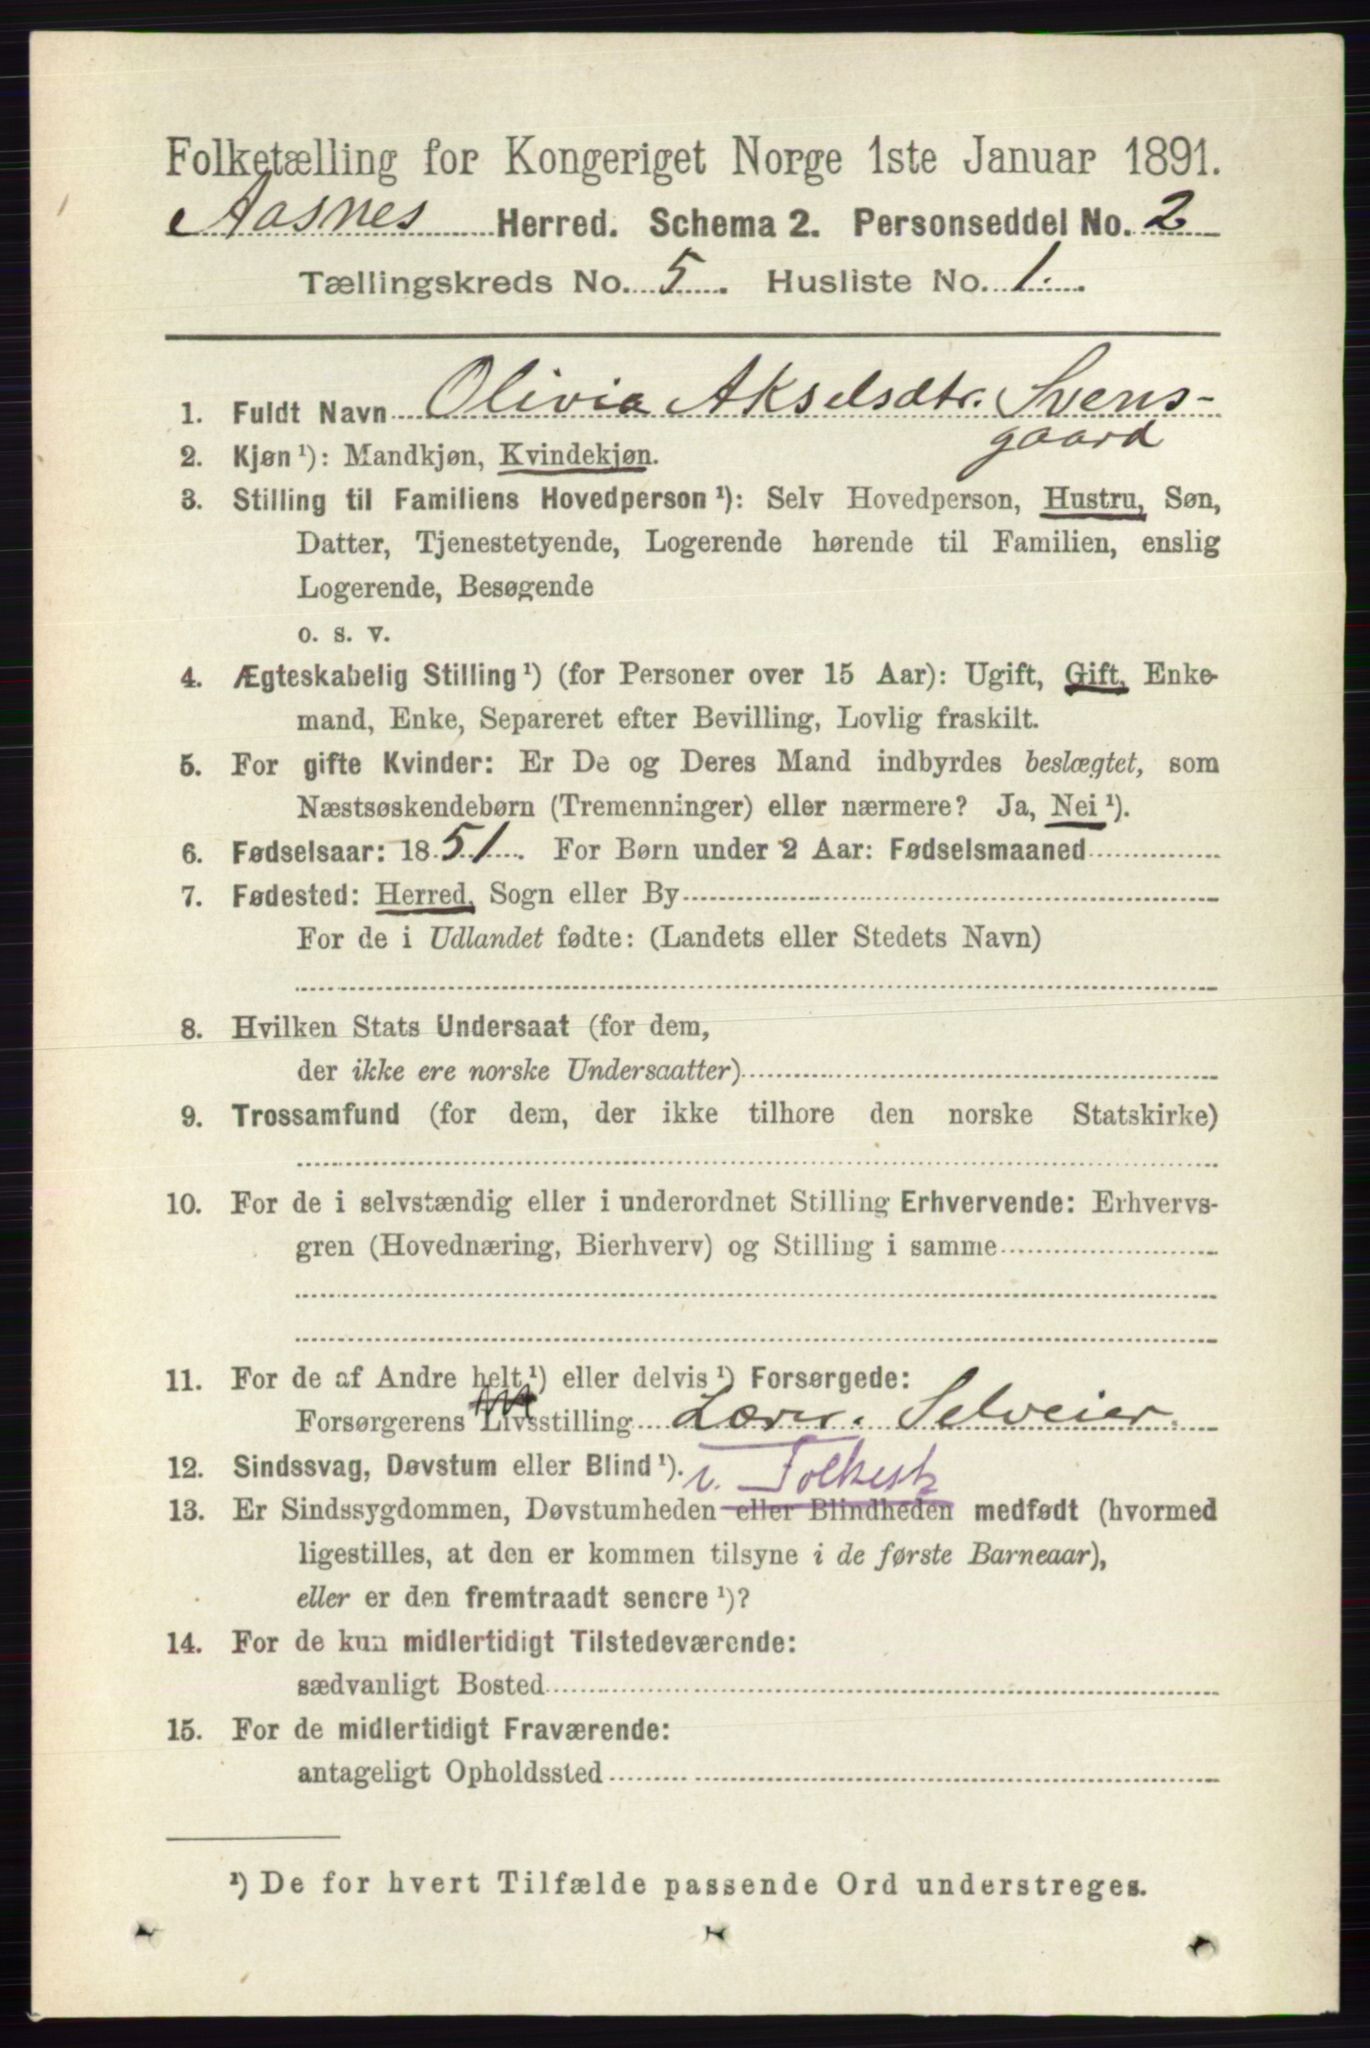 Folketælling for Kongeriget Norge 1ste Januar 1891.
Aasnes Herred. Schema 2. Personseddel No. 2
Tællingskreds No. 5. Husliste No. 1.
1. Fuldt Navn Olivia Akselsdtr. Svens-
gaard
2. Kjøn ¹): Mandkjøn, Kvindekjøn.
3. Stilling til Familiens Hovedperson ¹): Selv Hovedperson, Hustru, Søn,
Datter, Tjenestetyende, Logerende hørende til Familien, enslig
Logerende, Besøgende
o. s. v.
4. Ægteskabelig Stilling ¹) (for Personer over 15 Aar): Ugift, Gift, Enke-
mand, Enke, Separeret efter Bevilling, Lovlig fraskilt.
5. For gifte Kvinder: Er De og Deres Mand indbyrdes beslægtet, som
Næstsøskendebørn (Tremenninger) eller nærmere? Ja, Nei ¹).
6. Fødselsaar: 1851. For Børn under 2 Aar: Fødselsmaaned
7. Fødested: Herred, Sogn eller By
For de i Udlandet fødte: (Landets eller Stedets Navn)
8. Hvilken Stats Undersaat (for dem,
der ikke ere norske Undersaatter)
9. Trossamfund (for dem, der ikke tilhøre den norske Statskirke)
10. For de i selvstændig eller i underordnet Stilling Erhvervende: Erhvervs-
gren (Hovednæring, Bierhverv) og Stilling i samme
11. For de af Andre helt ¹) eller delvis ¹) Forsørgede:
Forsørgerens Livsstilling Lærer. Selveier.
12. Sindssvag, Døvstum eller Blind ¹). v. Folkesk
13. Er Sindssygdommen, Døvstumheden eller Blindheden medfødt (hvormed
ligestilles, at den er kommen tilsyne i de første Barneaar),
eller er den fremtraadt senere ¹)?
14. For de kun midlertidigt Tilstedeværende:
sædvanligt Bosted
15. For de midlertidigt Fraværende:
antageligt Opholdssted
¹) De for hvert Tilfælde passende Ord understreges.